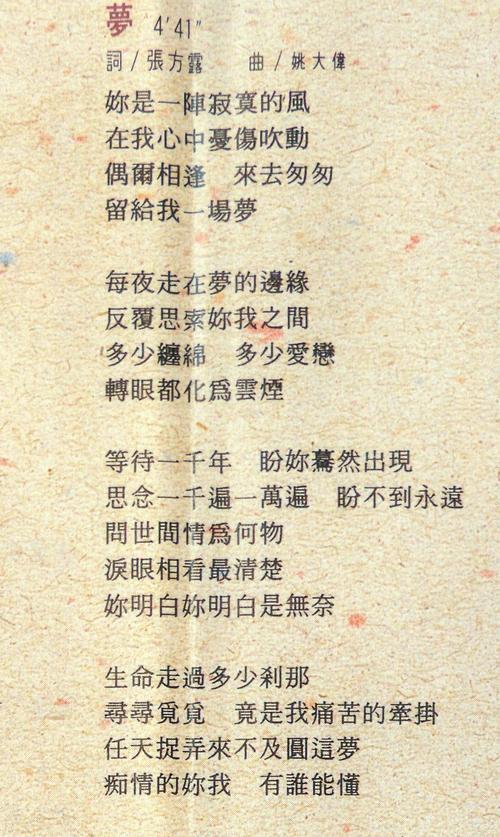 夢 4'41"
詞/張方露 曲/姚大偉
妳是一陣寂寞的風
在我心中憂傷吹動
偶爾相逢 來去匆匆
留給我一場夢
每夜走在夢的邊緣
反覆思索妳我之間
多少纏綿 多少愛戀
轉眼都化爲雲煙
等待一千年 盼妳驀然出現
思念一千遍一萬遍 盼不到永遠
問世間情爲何物
淚眼相看最清楚
妳明白妳明白是無奈
生命走過多少剎那
尋尋覓覓 竟是我痛苦的牽掛
任天捉弄來不及圓這夢
痴情的妳我 有誰能懂